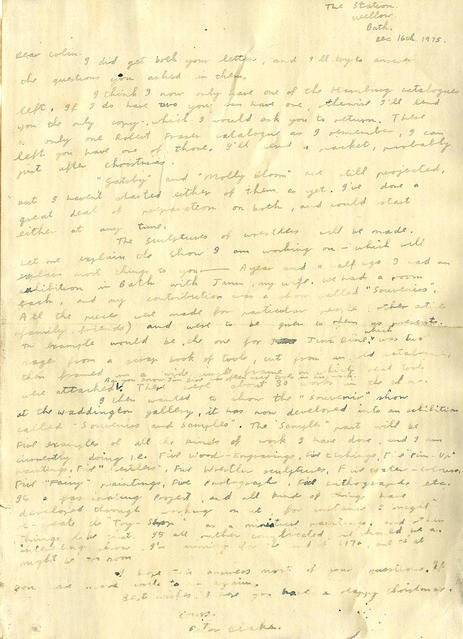 The Station
Wellow
Bath.
Dec 16th 1975.
Dear Colin.
I did get both your letters, and I'll try to answer
the questions you asked in them.
I think I now only have one of the Hamburg catalogues
left. If I do have two you can have one, otherwise I'll lend
you the only copy. which I would ask you to return. There
only one Robert Fraser catalogue as I remember, I can
left you have one of those. I'll send a packet, probably
just after Christmas.
"Gatsby" and "Molly Bloom" are still projected,
but I haven't started either of them as yet. I've done a
great deal of preparation on both, and could start
either at any time.
The sculptures of wrestlers will be made.
Let me explain the show I am working on - which will
explain most things to you — A year and a half ago I had an
exhibition in Bath with Jann, my wife. we had a room
each, and my contribution was a show called "Souvenirs".
All the pieces were made for particular people (other artists
family, friends) and were to be given to them as presents.
an example would be, the one for Jim Dine, which was two
page from a scrap book of tools, cut from an old catalogue,
then framed in a wide frame on which real tools
were attached. There were about 30 works in the show.
I then wanted to show the "Souvenir" show
at the Waddington gallery, it was now developed into an exhibition
called "Souvenirs and Samples". The "Sample" part will be
Five examples of all the kinds of work I have done, and I am
currently doing i.e. Five Wood-Engravings, Five Etchings, Five "Pin-Up"
paintings, Five Wrestler sculptures, Five water-colours.
Five "Fairy" paintings, Five Photographs, Five etc.
It's a project, and all kind of things have
developed through working on it for instance I might
"Toy-Shop" as a miniature and other
things like that. It's all rather complicated but should be an
interesting show. I'm
might be
I hope answers most of your questions. If
you
Best wishes. I hope you have a Happy Christmas.
Peter Blake.